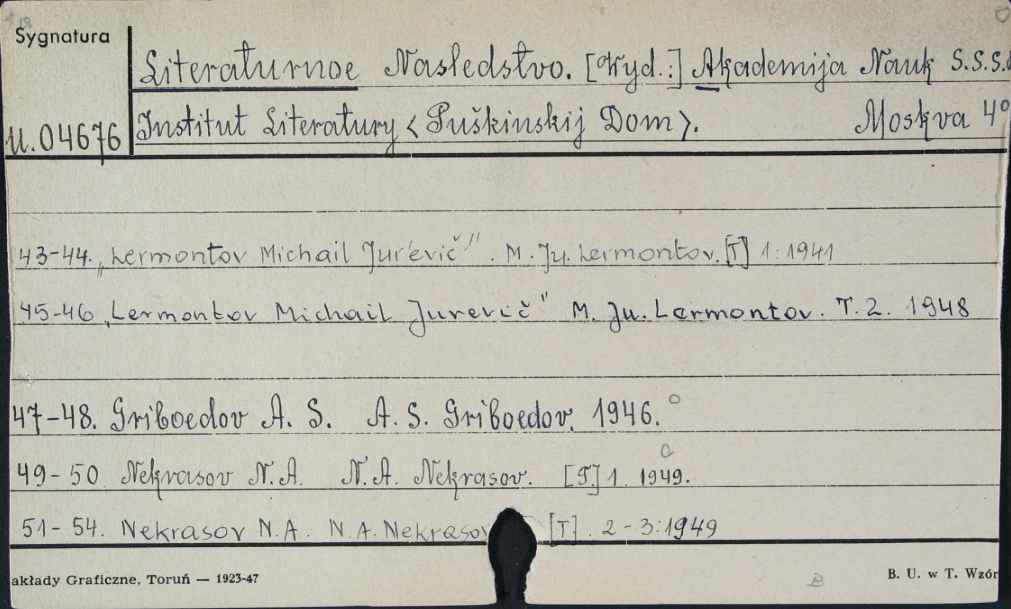 Sygnatura
Literaturnoe Nasledstvo. [Wyd.:] Akademija Nauk S.S.S.
U.04676 Institut Literatury <Puškinskij Dom>. Moskva 4°
43-44. „Lermontov Michail Jur'evič". M. Ju. Lermontov. [T] 1:1941
45-46 „Lermontov Michail Jurevič" M. Ju. Lermontov. T. 2. 1948
47-48. Griboedov A. S. A. S. Griboedov. 1946.
49-50 Nekrasov N. A. N. A. Nekrasov. [T.] 1. 1949.
51-54. Nekrasov N. A. N. A. Nekrasov [T]. 2-3:1949
akłady Graficzne, Toruń — 1923-47 B. U. w T. Wzór